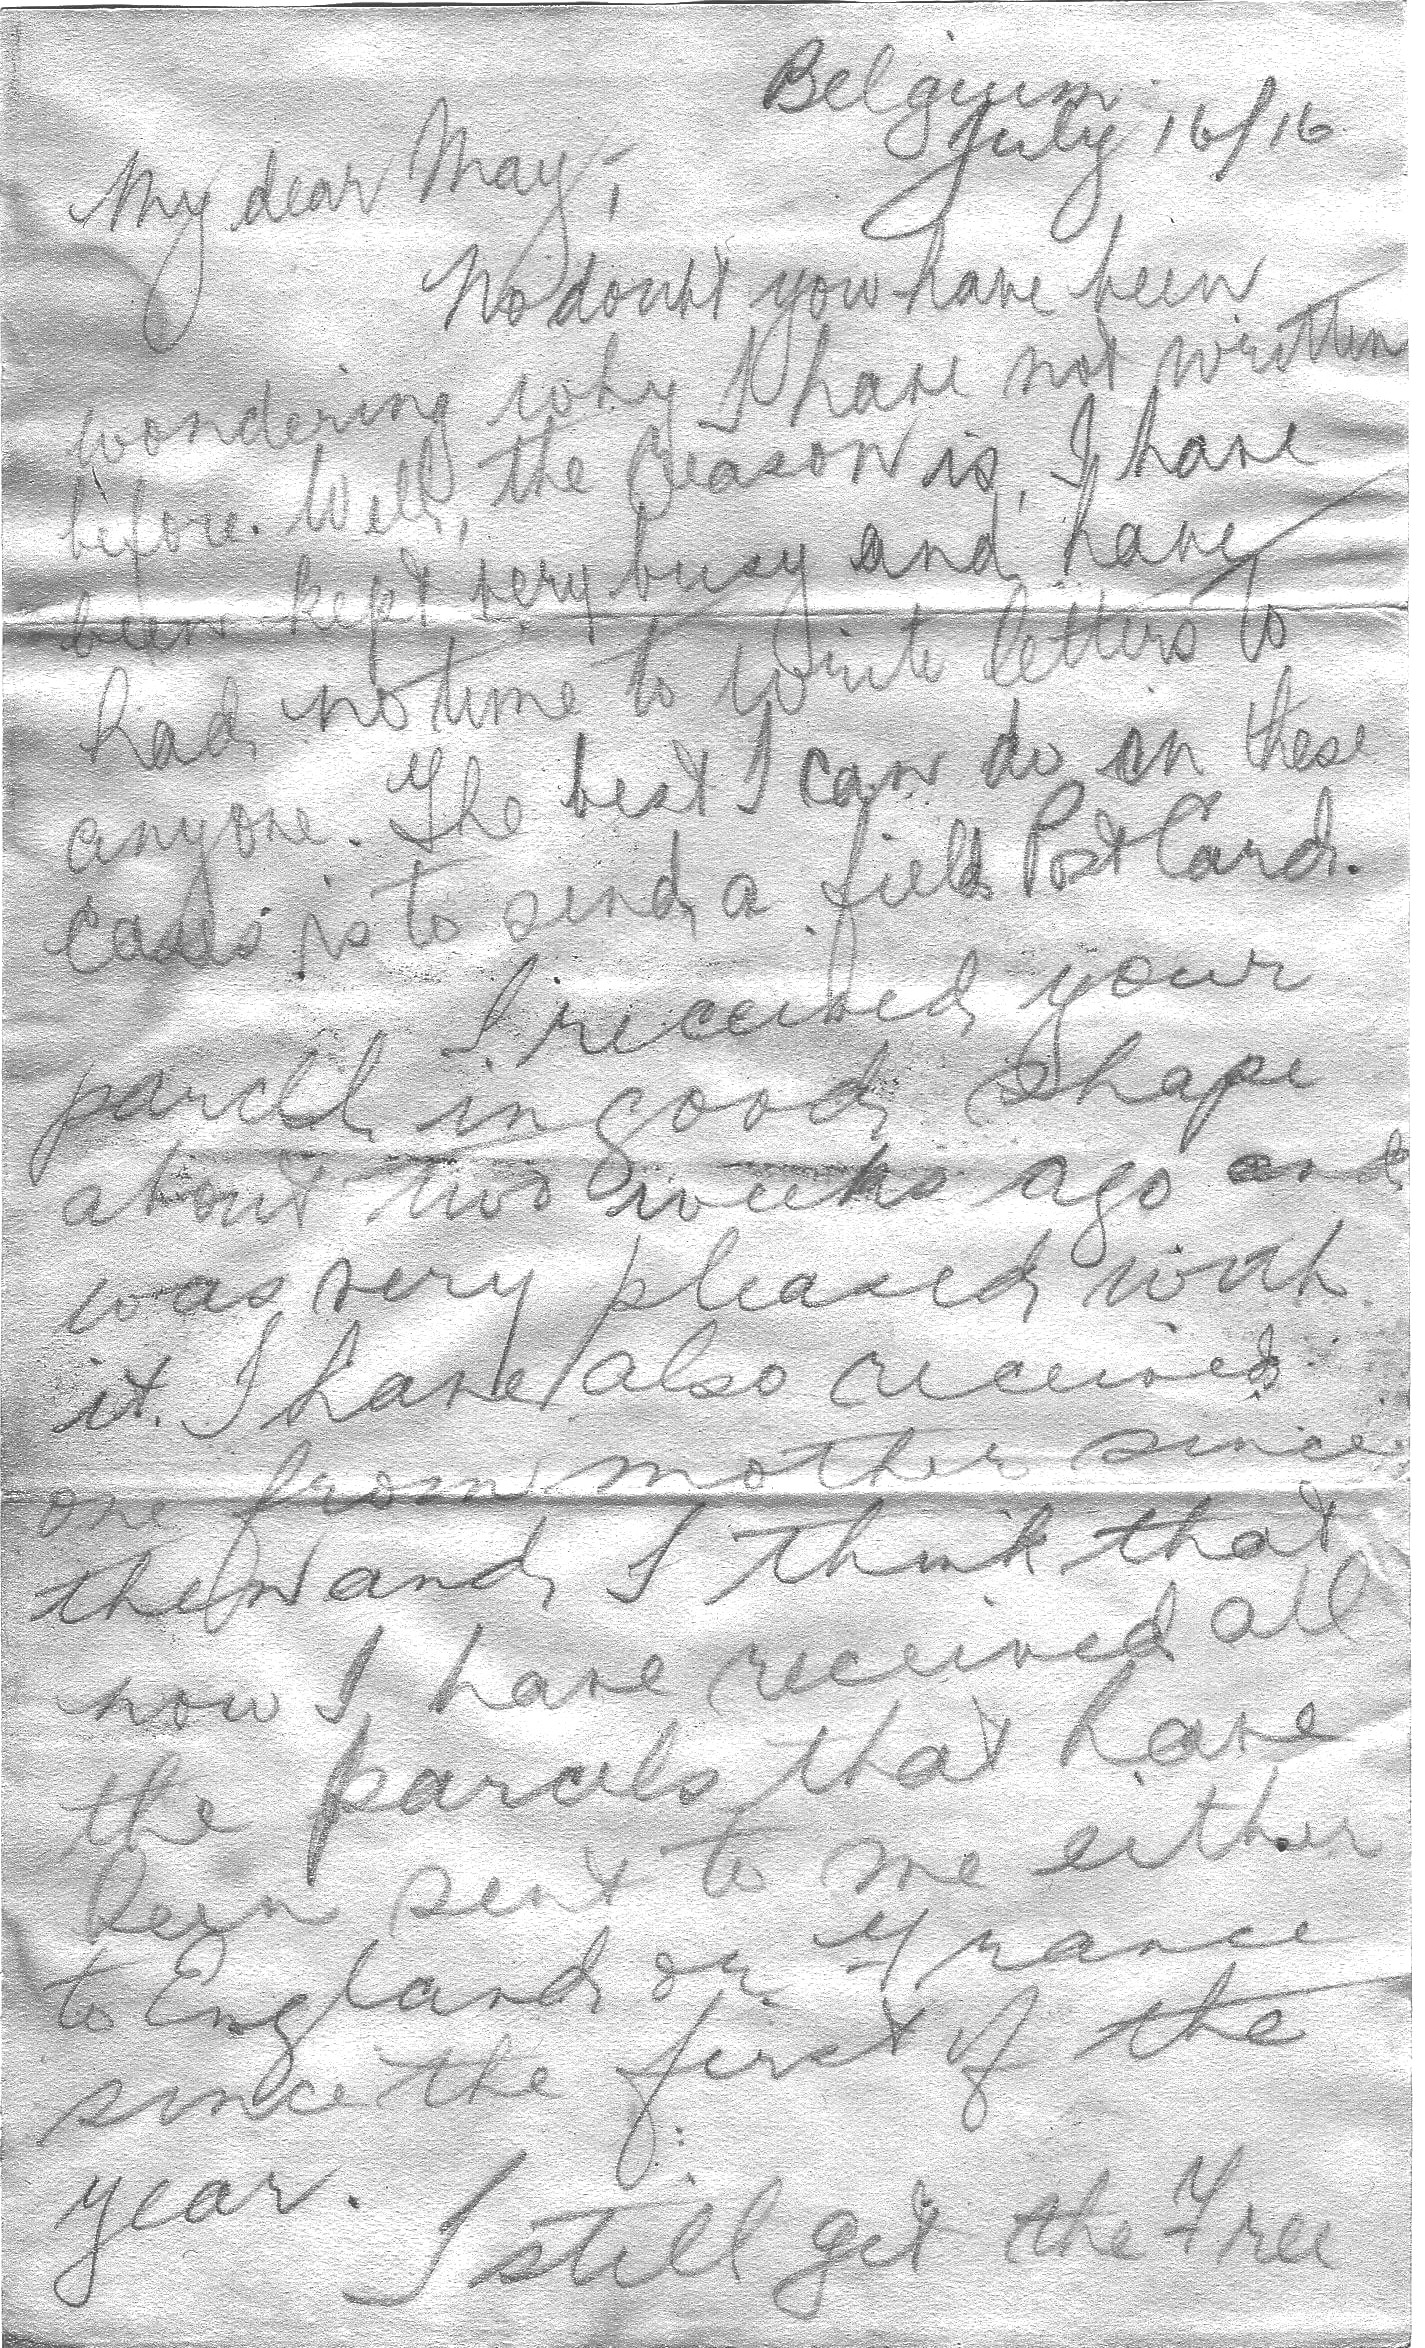 Belgium
July 16/16
My dear May;
No doubt you have been
wondering why I have not written
before. Well, the reason is, I have
been kept very busy and have
had no time to write letters to
anyone. The best I can do in these
cases is to send a field Post Card.
I received your
parcel in good shape
about two weeks ago and
was very pleased with
it. I have also received
one from mother since
then and I think that
now I have received all
the parcels that have
been sent to me either
to England or France
since the first of the
year.
I still get the Free